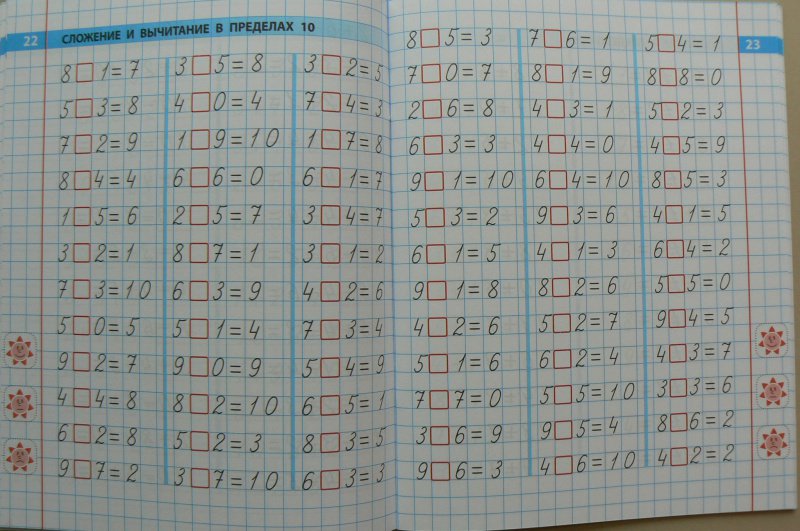 22 СЛОЖЕНИЕ И ВЫЧИТАНИЕ В ПРЕДЕЛАХ 10
8□1=7 3□5=8 3□2=5
5□3=8 4□0=4 7□4=3
7□2=9 1□9=10 1□7=8
8□4=4 6□6=0 6□1=7
1□5=6 2□5=7 3□4=7
3□2=1 8□7=1 3□1=2
7□3=10 6□3=9 4□2=6
5□0=5 5□1=4 7□3=4
9□2=7 9□0=9 5□4=9
4□4=8 8□2=10 6□5=1
6□2=8 5□2=3 8□3=5
9□7=2 3□7=10 6□3=3
23
8□5=3 7□6=1 5□4=1
7□0=7 8□1=9 8□8=0
2□6=8 4□3=1 5□2=3
6□3=3 4□4=0 4□5=9
9□1=10 6□4=10 8□5=3
5□3=2 9□3=6 4□1=5
6□1=5 4□1=3 6□4=2
9□1=8 8□2=6 5□5=0
4□2=6 5□2=7 9□4=5
5□1=6 6□2=4 4□3=7
7□7=0 5□5=10 3□3=6
3□6=9 9□5=4 8□6=2
9□6=3 4□6=10 4□2=2